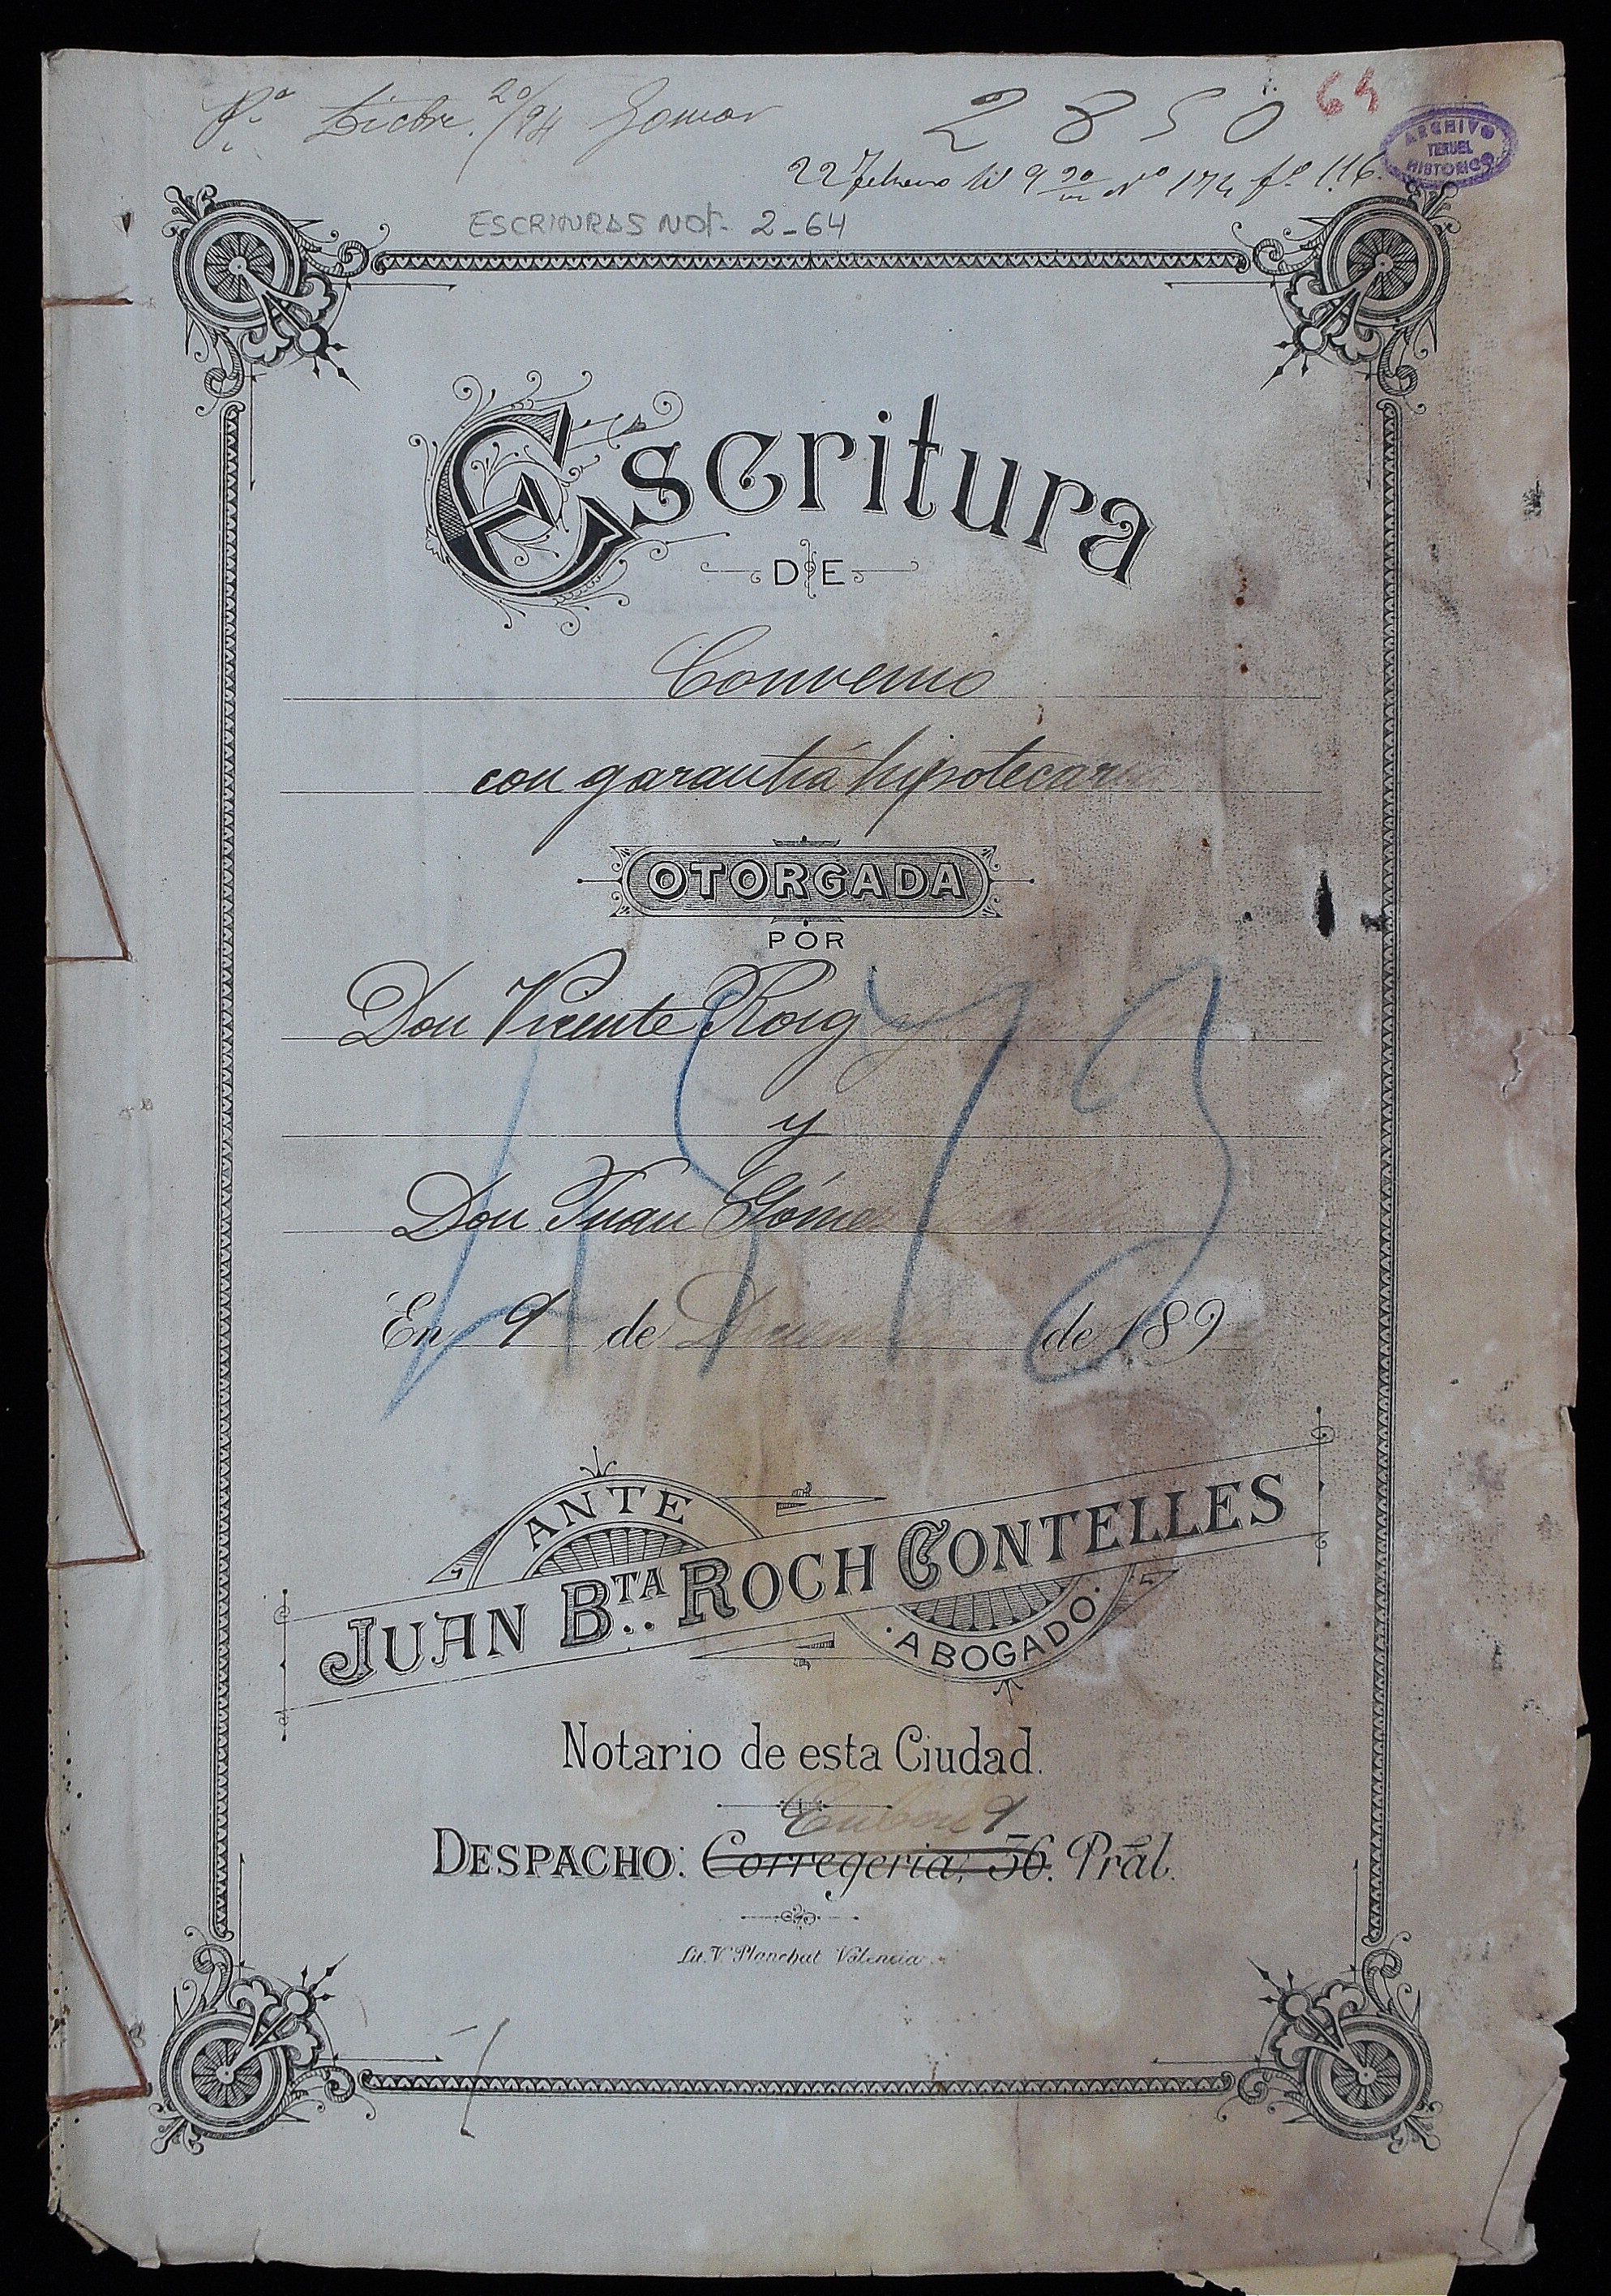 Pª Dicbre. 20/94 Gomar
2850 64
ARCHIVO
TERUEL
HISTORICO
22 Febrero Nº 174 fº 116.
ESCRITURAS NOT. 2-64
Escritura
DE
Convenio
con garantía hipotecaria
OTORGADA
POR
Don Vicente Roig y
y
Don Juan Gómez
En 9 de Diciembre de 189
ANTE
JUAN BTA. ROCH CONTELLES
ABOGADO
Notario de esta Ciudad.
DESPACHO: Corregeria, 36. Pral.
Lit. V. Planchat Valencia